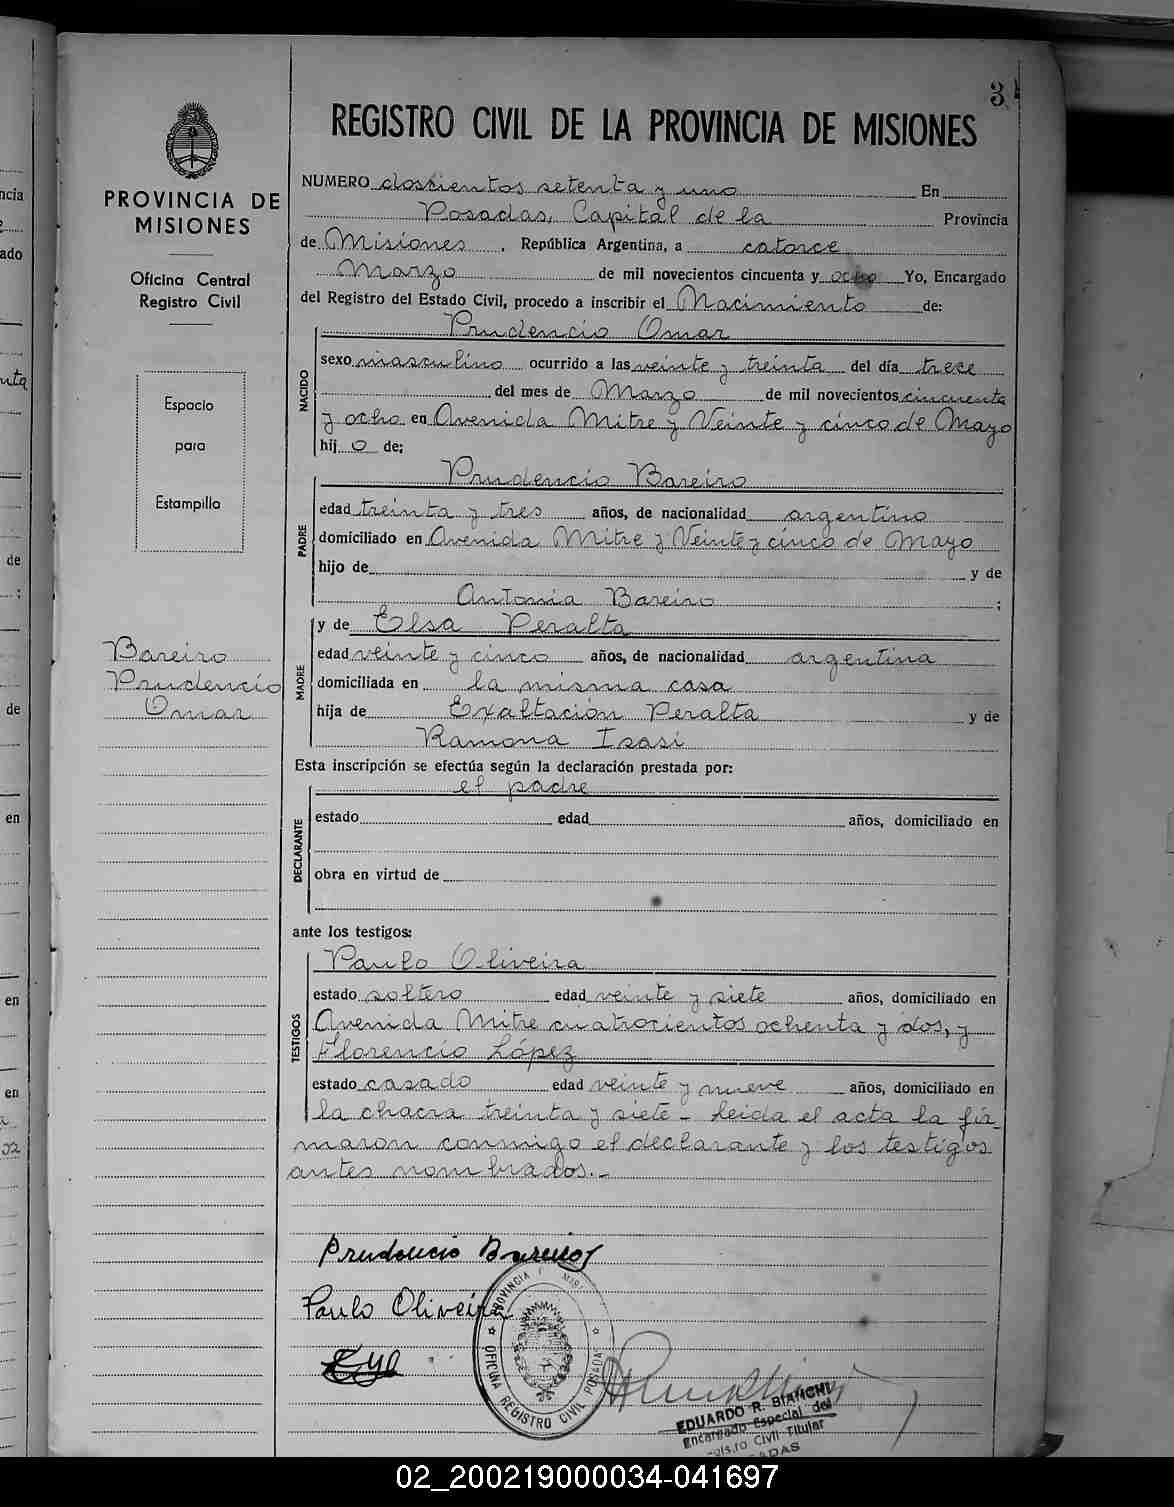 3
REGISTRO CIVIL DE LA PROVINCIA DE MISIONES
PROVINCIA DE
MISIONES
Oficina Central
Registro Civil
Espacio
para
Estampilla
Bareiro
Prudencio
Omar
NUMERO doscientos setenta y uno En
Posadas, Capital de la Provincia
de Misiones, República Argentina, a catorce
Marzo de mil novecientos cincuenta y ocho Yo, Encargado
del Registro del Estado Civil, procedo a inscribir el Nacimiento de:
NACIDO
Prudencio Omar
sexo masculino ocurrido a las veinte y treinta del día trece
del mes de Marzo de mil novecientos cincuenta
y ocho en Avenida Mitre y Veinte y cinco de Mayo
hij o de:
PADRE
Prudencio Bareiro
edad treinta y tres años, de nacionalidad argentino
domiciliado en Avenida Mitre y Veinte y cinco de Mayo
hijo de y de
Antonia Bareiro ;
MADRE
y de Elsa Peralta
edad veinte y cinco años, de nacionalidad argentina
domiciliada en la misma casa
hija de Exaltación Peralta y de
Ramona Isasi
Esta inscripción se efectúa según la declaración prestada por:
DECLARANTE
el padre
estado edad años, domiciliado en
obra en virtud de
ante los testigos:
TESTIGOS
Paulo Oliveira
estado soltero edad veinte y siete años, domiciliado en
Avenida Mitre cuatrocientos ochenta y dos, y
Florencio López
estado casado edad veinte y nueve años, domiciliado en
la chacra treinta y siete - Leida el acta la fir_
maron conmigo el declarante y los testigos
antes nombrados.-
Prudencio Bareiro
Paulo Oliveira
PROVINCIA
OFICINA REGISTRO CIVIL POSADAS
EDUARDO R. BIANCHI
Encargado Especial del
Civil Titular
02_200219000034-041697